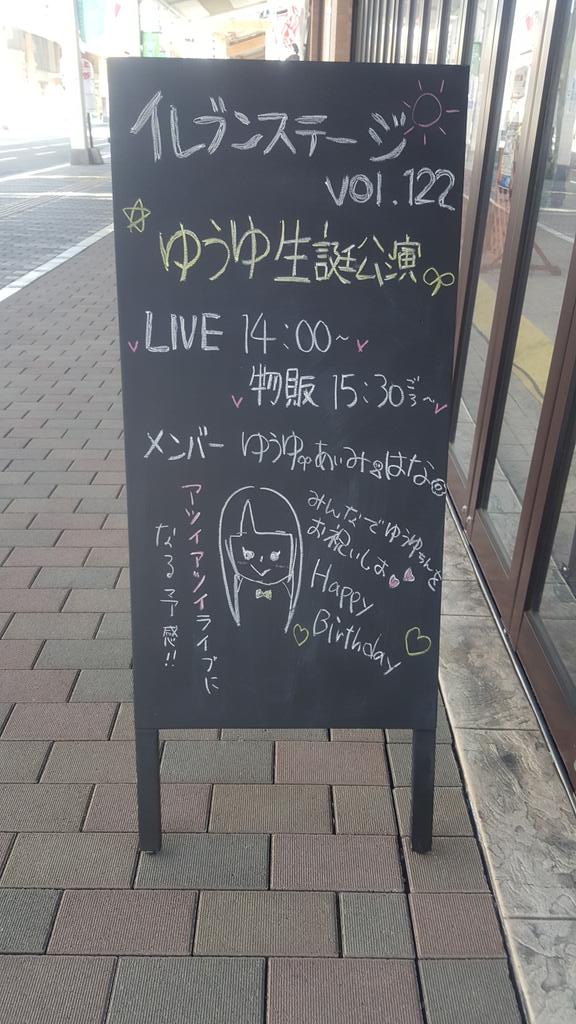 イレブンステージ
vol.122
ゆうゆ生誕公演
LIVE 14:00~
物販 15:30ごろ~
メンバー ゆうゆ あいみ はな
みんなでゆうゆちゃんを
お祝いしよ
Happy
Birthday
アツイアツイライブに
なる予感!!